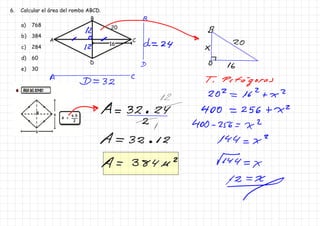 6. Calcular el área del rombo ABCD.
a) 768
b) 384
c) 284
d) 60
e) 30
B
20
12
A
16
C
12
D
B
d = 24
D
A
C
D = 32
B
20
x
O
16
T. Pitágoras
20² = 16² + x²
400 = 256 + x²
400 - 256 = x²
144 = x²
√144 = x
12 = x
A = 32 . 24
2
12
1
A = 32 . 12
A = 384 u²